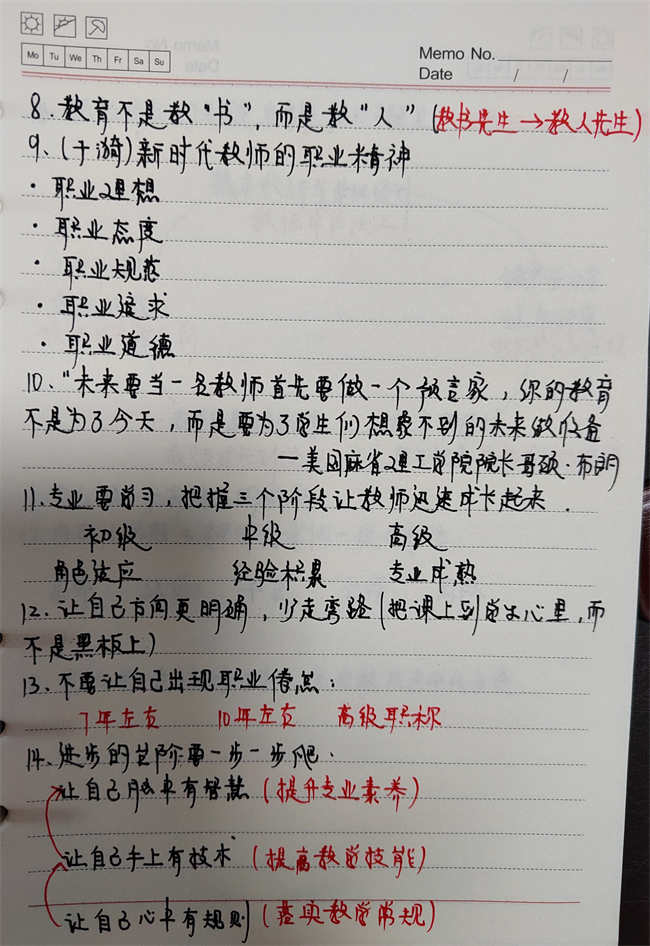 Mo Tu We Th Fr Sa Su
Memo No.
Date / /
8、教育不是教“书”，而是教“人”（教书先生→教人先生）
9、（于漪）新时代教师的职业精神
· 职业理想
· 职业态度
· 职业规范
· 职业追求
· 职业道德
10、“未来要当一名教师首先要做一个预言家，你的教育
不是为了今天，而是要为了学生们想象不到的未来做准备
—美国麻省理工学院院长哥颈·布朗
11、专业要学习，把握三个阶段让教师迅速成长起来.
初级 中级 高级
角色适应 经验积累 专业成熟
12、让自己方向更明确，少走弯路（把课上到学生心里，而
不是黑板上）
13、不要让自己出现职业倦怠：
7年左右 10年左右 高级职称
14、进步的台阶要一步一步爬.
让自己脑中有智慧（提升专业素养）
让自己手上有技术（提高教学技能）
让自己心中有规则（落实教学常规）